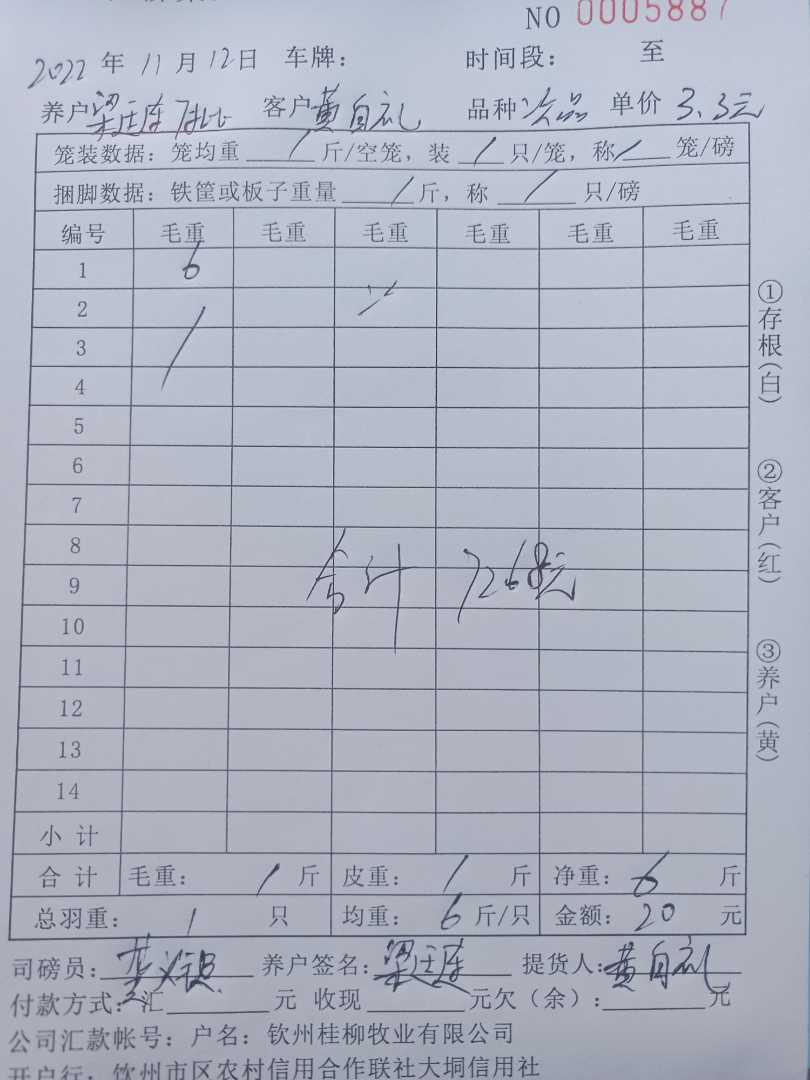 NO 0005887
2022 年 11 月 12 日 车牌： 时间段： 至
养户 梁廷连 客户 黄自礼 品种 次品 单价 3.3元
笼装数据：笼均重 / 斤/空笼，装 / 只/笼，称 / 笼/磅
捆脚数据：铁筐或板子重量 / 斤，称 / 只/磅
编号 毛重 毛重 毛重 毛重 毛重 毛重
1 6
2
3
4
5
6
7
8
9
10
11
12
13
14
合计 7268元
小 计
合 计 毛重： / 斤 皮重： / 斤 净重： 6 斤
总羽重： 1 只 均重： 6 斤/只 金额： 20 元
司磅员： 养户签名： 梁廷连 提货人： 黄自礼
付款方式：汇 元 收现 元欠（余）： 元
公司汇款帐号：户名：钦州桂柳牧业有限公司
开户行：钦州市区农村信用合作联社大垌信用社
①存根（白）
②客户（红）
③养户（黄）